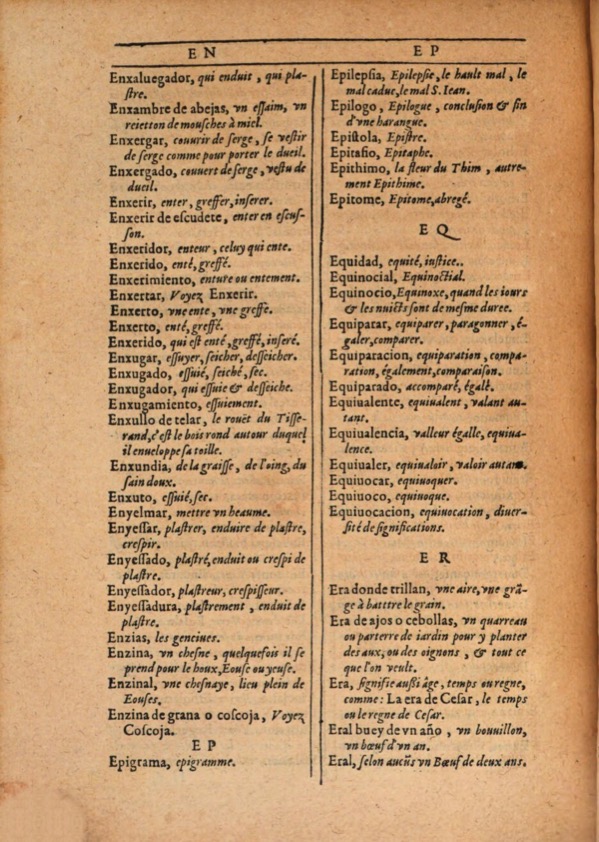 EN
Enxaluegador, qui enduit, qui pla-
stre.
Enxambre de abejas, vn essaim, vn
reietton de mousches à miel.
Enxergar, couurir de serge, se vestir
de serge comme pour porter le dueil.
Enxergado, couuert de serge, vestu de
dueil.
Enxerir, enter, greffer, inserer.
Enxerir de escudete, enter en escus-
son.
Enxeridor, enteur, celuy qui ente.
Enxerido, enté, greffé.
Enxerimiento, enture ou entement.
Enxertar, Voyez Enxerir.
Enxerto, vne ente, vne greffe.
Enxerto, enté, greffé.
Enxerido, qui est enté, greffé, inseré.
Enxugar, essuyer, seicher, desseicher.
Enxugado, essuié, seiché, sec.
Enxugador, qui essuie & desseiche.
Enxugamiento, essuiement.
Enxullo de telar, le rouët du Tisse-
rand, c'est le bois rond autour duquel
il enueloppe sa toille.
Enxundia, de la graisse, de l'oing, du
sain doux.
Enxuto, essuié, sec.
Enyelmar, mettre vn heaume.
Enyessar, plastrer, enduire de plastre,
crespir.
Enyessado, plastré, enduit ou crespi de
plastre.
Enyessador, plastreur, crespisseur.
Enyessadura, plastrement, enduit de
plastre.
Enzias, les genciues.
Enzina, vn chesne, quelquefois il se
prend pour le houx, Eouse ou yeuse.
Enzinal, vne chesnaye, lieu plein de
Eouses.
Enzina de grana o coscoja, Voyez
Coscoja.
EP
Epigrama, epigramme.
EP
Epilepsia, Epilepsie, le hault mal, le
mal caduc, le mal S. Iean.
Epilogo, Epilogue, conclusion & fin
d'vne harangue.
Epistola, Epistre.
Epitafio, Epitaphe.
Epithimo, la fleur du Thim, autre-
ment Epithime.
Epitome, Epitome, abregé.
EQ
Equidad, equité, iustice..
Equinocial, Equinoctial.
Equinocio, Equinoxe, quand les iours
& les nuicts sont de mesme duree.
Equiparar, equiparer, paragonner, é-
galer, comparer.
Equiparacion, equiparation, compa-
ration, également, comparaison.
Equiparado, accomparé, égalé.
Equiualente, equiualent, valant au-
tant.
Equiualencia, valleur égalle, equiua-
lence.
Equiualer, equiualoir, valoir autant.
Equiuocar, equiuoquer.
Equiuoco, equiuoque.
Equiuocacion, equiuocation, diuer-
sité de significations.
ER
Era donde trillan, vne aire, vne grã-
ge à batttre le grain.
Era de ajos o cebollas, vn quarreau
ou parterre de iardin pour y planter
des aux, ou des oignons, & tout ce
que l'on veult.
Era, signifie aussi âge, temps ou regne,
comme: La era de Cesar, le temps
ou le regne de Cesar.
Eral buey de vn año, vn bouuillon,
vn bœuf d'vn an.
Eral, selon aucũs vn Bœuf de deux ans.